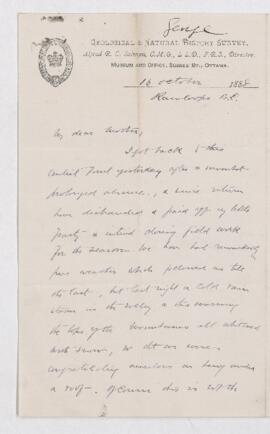 GEOLOGICAL & NATURAL HISTORY SURVEY.
Alfred R. C. Selwyn, C.M.G., L.L.D., F.R.S., Director.
MUSEUM AND OFFICE, SUSSEX ST., OTTAWA.
16 October 1888
Kamloops B.C.
My dear
I got back to this
central point yesterday after a somewhat
prolonged absence, & since return
have disbanded & paid off my little
party & intend closing field work
for the season. We have had remarkably
fine weather which followed us till
the last, but last night a cold rain
came in the valley & this morning
the tops of the mountains all
with snow, so that we were
congratulating ourselves on being under
a roof. Of course this is not the